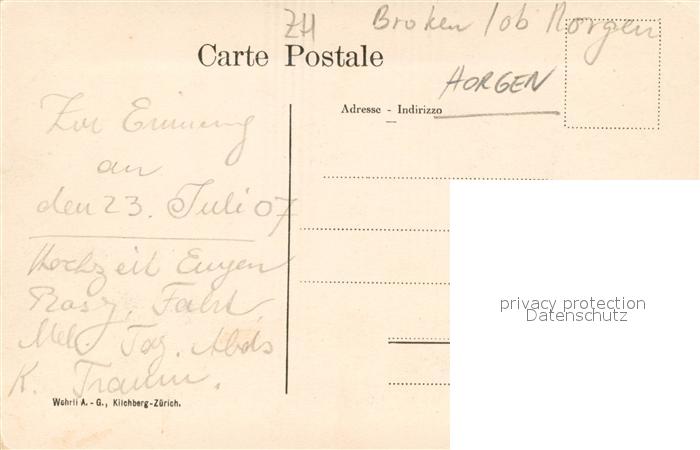 ZH Broken / ob Horgen
Carte Postale
HORGEN
Adresse - Indirizzo
Zur Erinnerung
an
den 23. Juli 07
Hochzeit Eugen
Fahrt,
Tag. Abds
K. Traum.
privacy protection
Datenschutz
Wehrli A.-G., Kilchberg-Zürich.